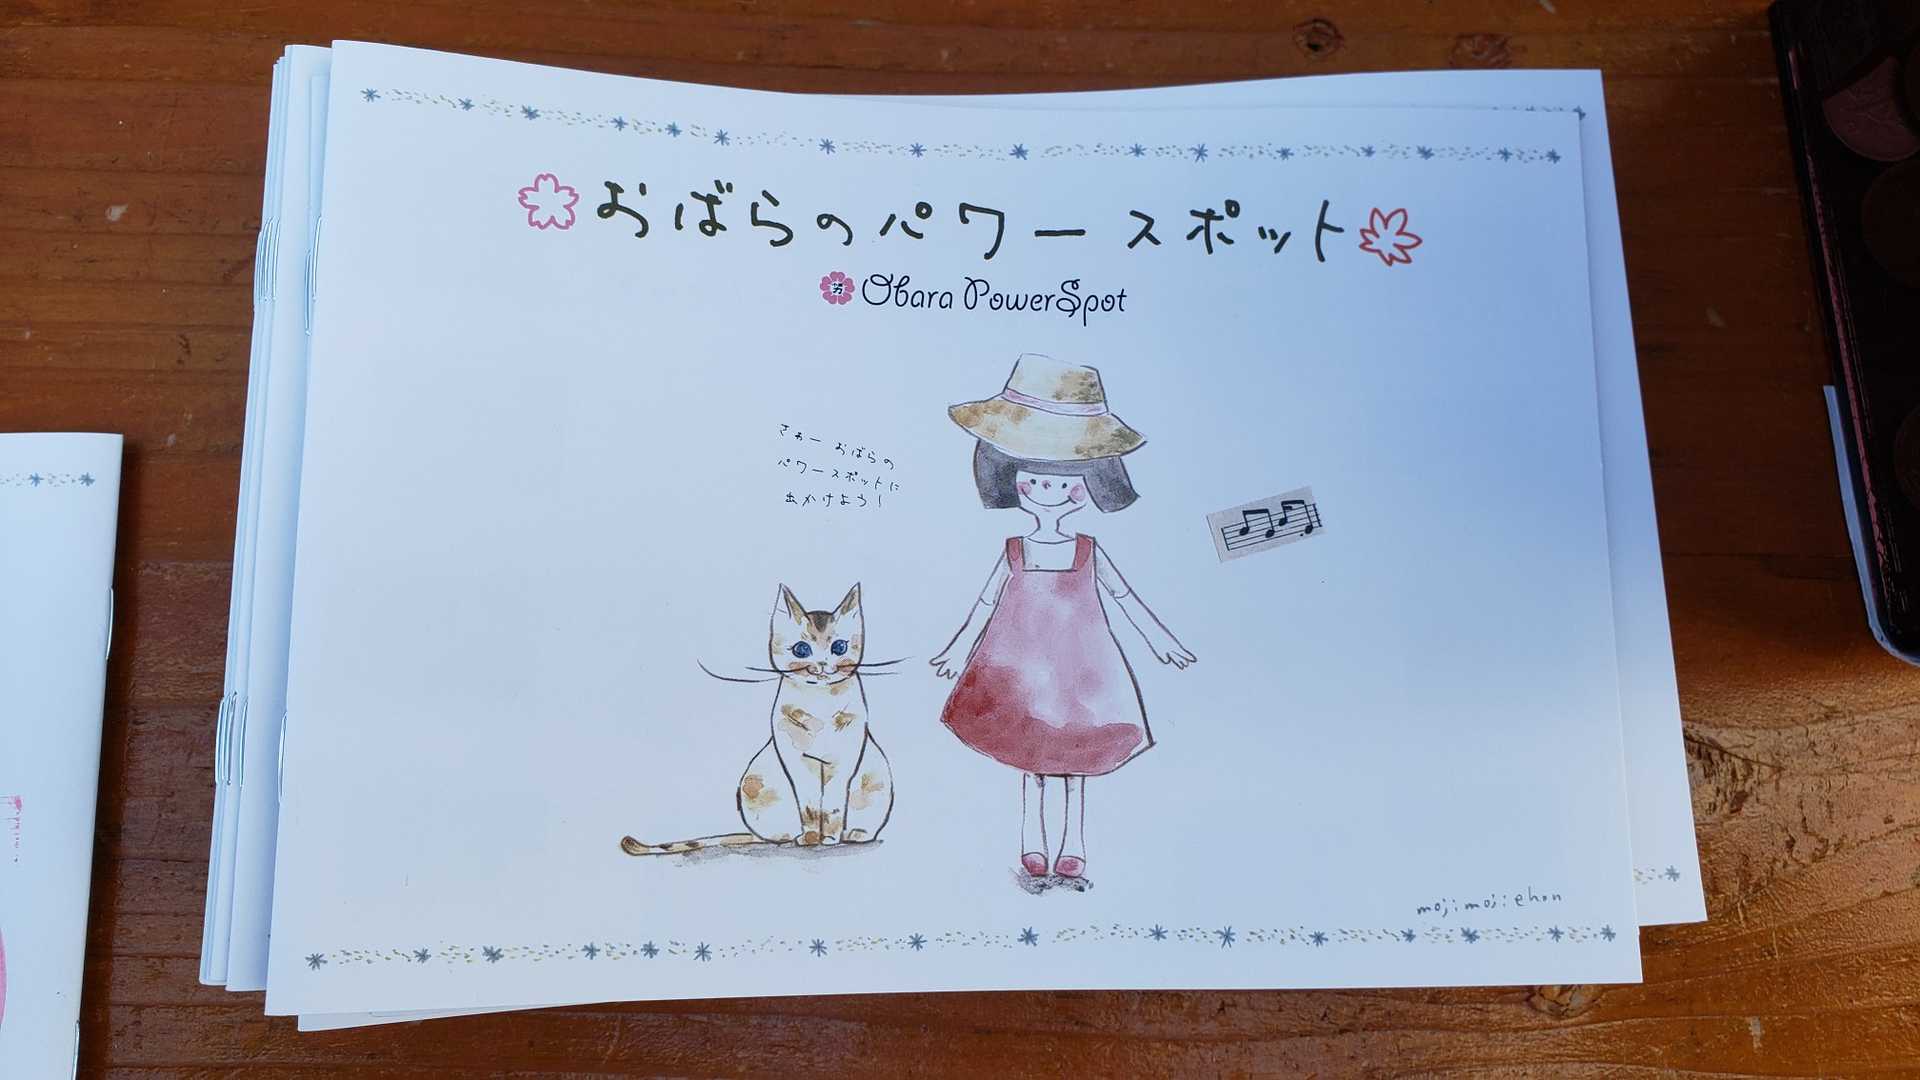 おばらのパワースポット
Obara PowerSpot
さぁー おばらの
パワースポットに
出かけよう!
mojimojiehon